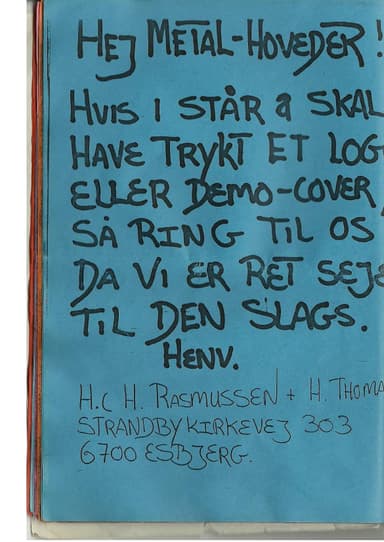 HEJ METAL-HOVEDER!
HVIS I STÅR & SKAL
HAVE TRYKT ET LOG
ELLER DEMO-COVER,
SÅ RING TIL OS
DA VI ER RET SEJE
TIL DEN SLAGS.
HENV.
H.C H. RASMUSSEN + H. THOMA
STRANDBY KIRKEVEJ 303
6700 ESBJERG.